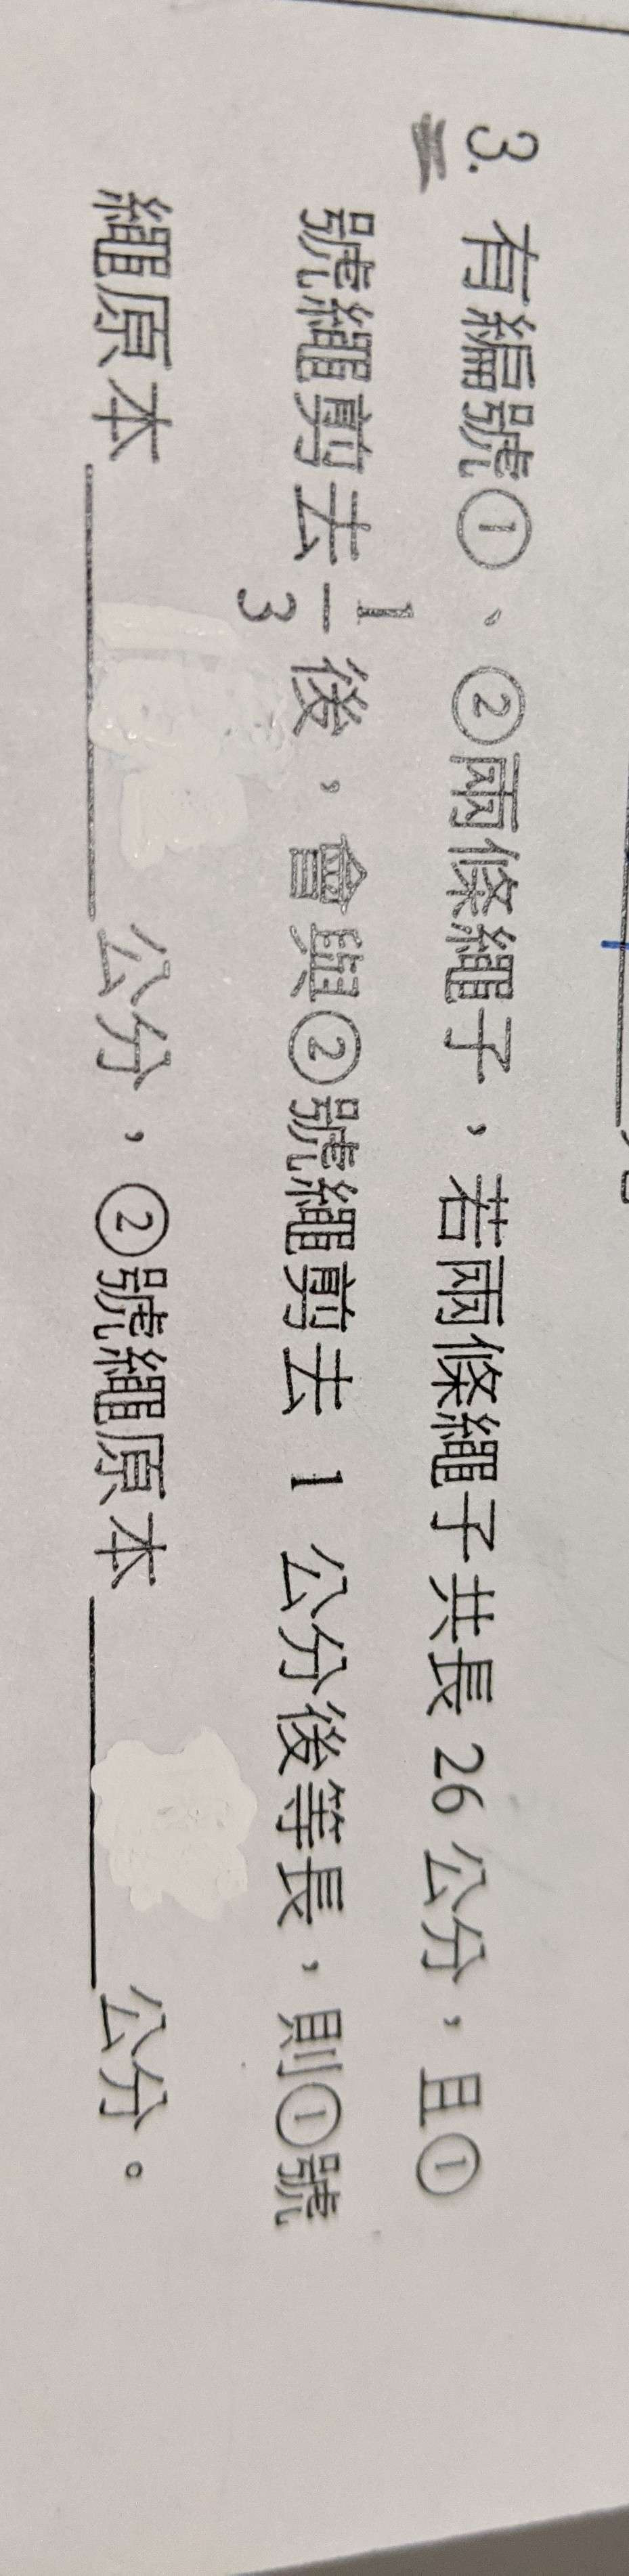 3. 有編號①、②兩條繩子，若兩條繩子共長 26 公分，且①
號繩剪去 1/3 後，會與②號繩剪去 1 公分後等長，則①號
繩原本______公分，②號繩原本______公分。